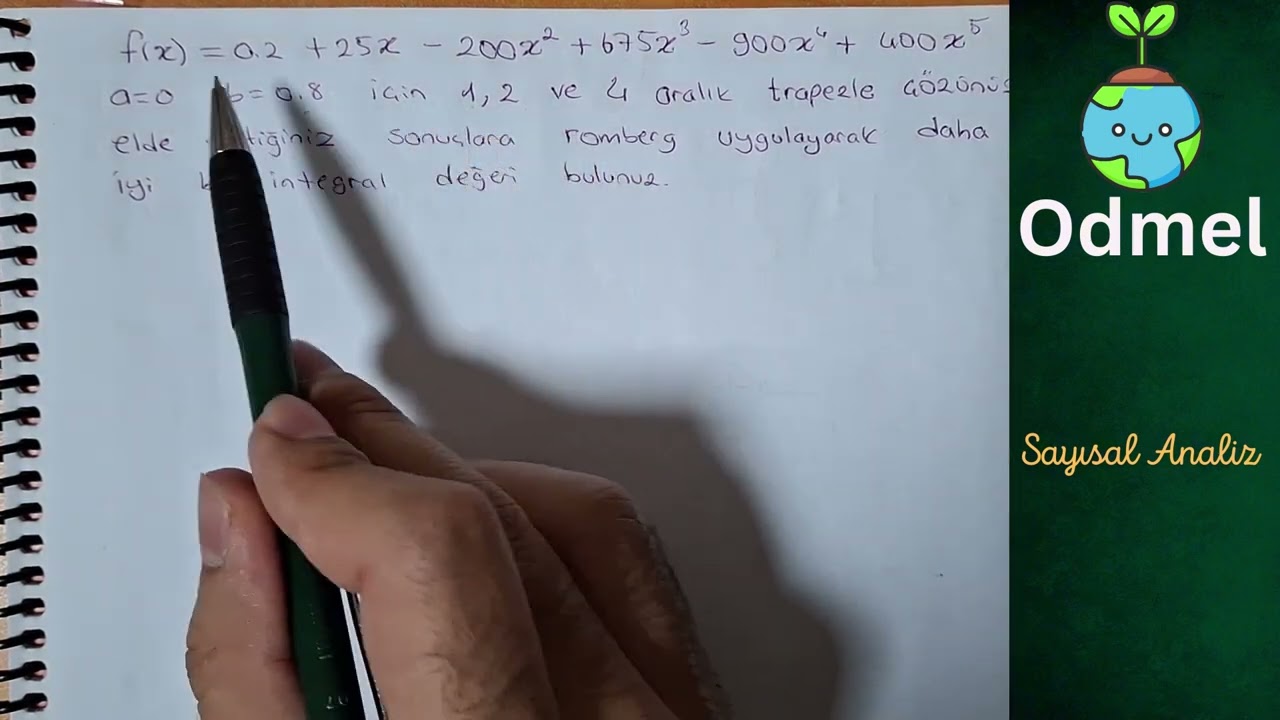 f(x) = 0.2 + 25x - 200x² + 675x³ - 900x⁴ + 400x⁵
a=0 b=0.8 için 1, 2 ve 4 aralık trapezle
elde sonuçlara romberg uygulayarak daha
iyi integral değeri bulunuz.
Odmel
Sayısal Analiz